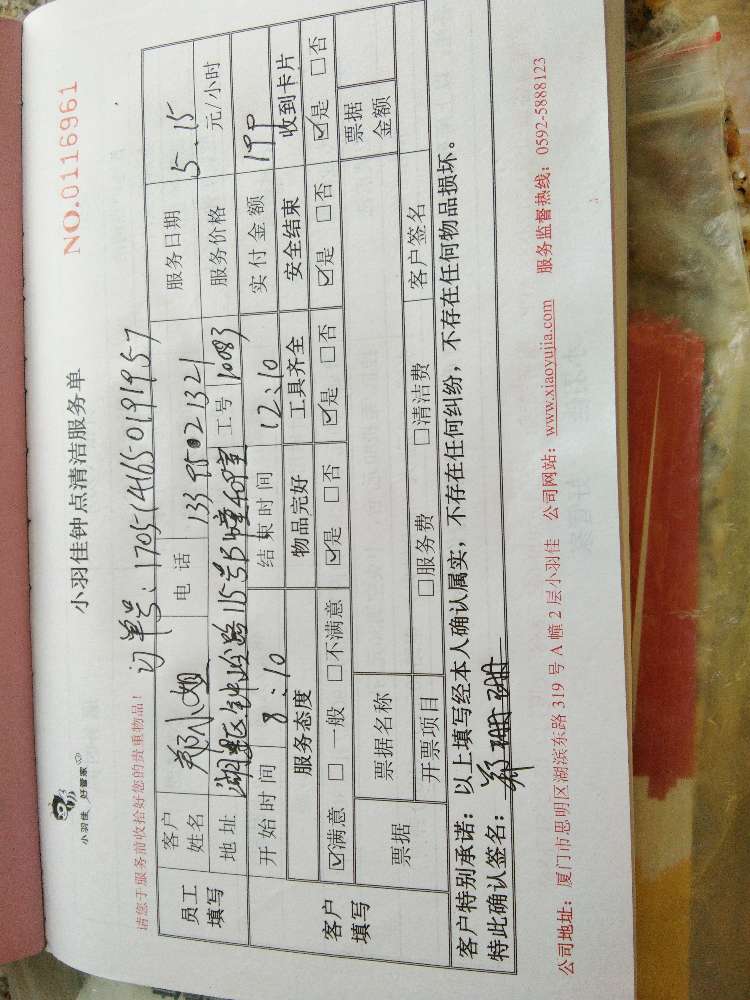 小羽佳 好管家
小羽佳钟点清洁服务单
NO.0116961
请您于服务前收拾好您的贵重物品!
订单号:1705141650191957
员工填写
客户姓名 郑小姐 电话 13395021321 服务日期 5.15
地址 湖里区钟岭路115号 408室 工号 10083 服务价格 元/小时
开始时间 8:10 结束时间 12:10 实付金额
客户填写
服务态度 物品完好 工具齐全 安全结束 收到卡片
☑满意 □一般 □不满意 ☑是 □否 ☑是 □否 ☑是 □否 ☑是 □否
票据 票据名称 票据金额
开票项目 □服务费 □清洁费 客户签名
客户特别承诺:以上填写经本人确认属实,不存在任何纠纷,不存在任何物品损坏。
特此确认签名:郑珊珊
公司地址:厦门市思明区湖滨东路319号A幢2层小羽佳 公司网站:www.xiaoyujia.com 服务监督热线:0592-5888123